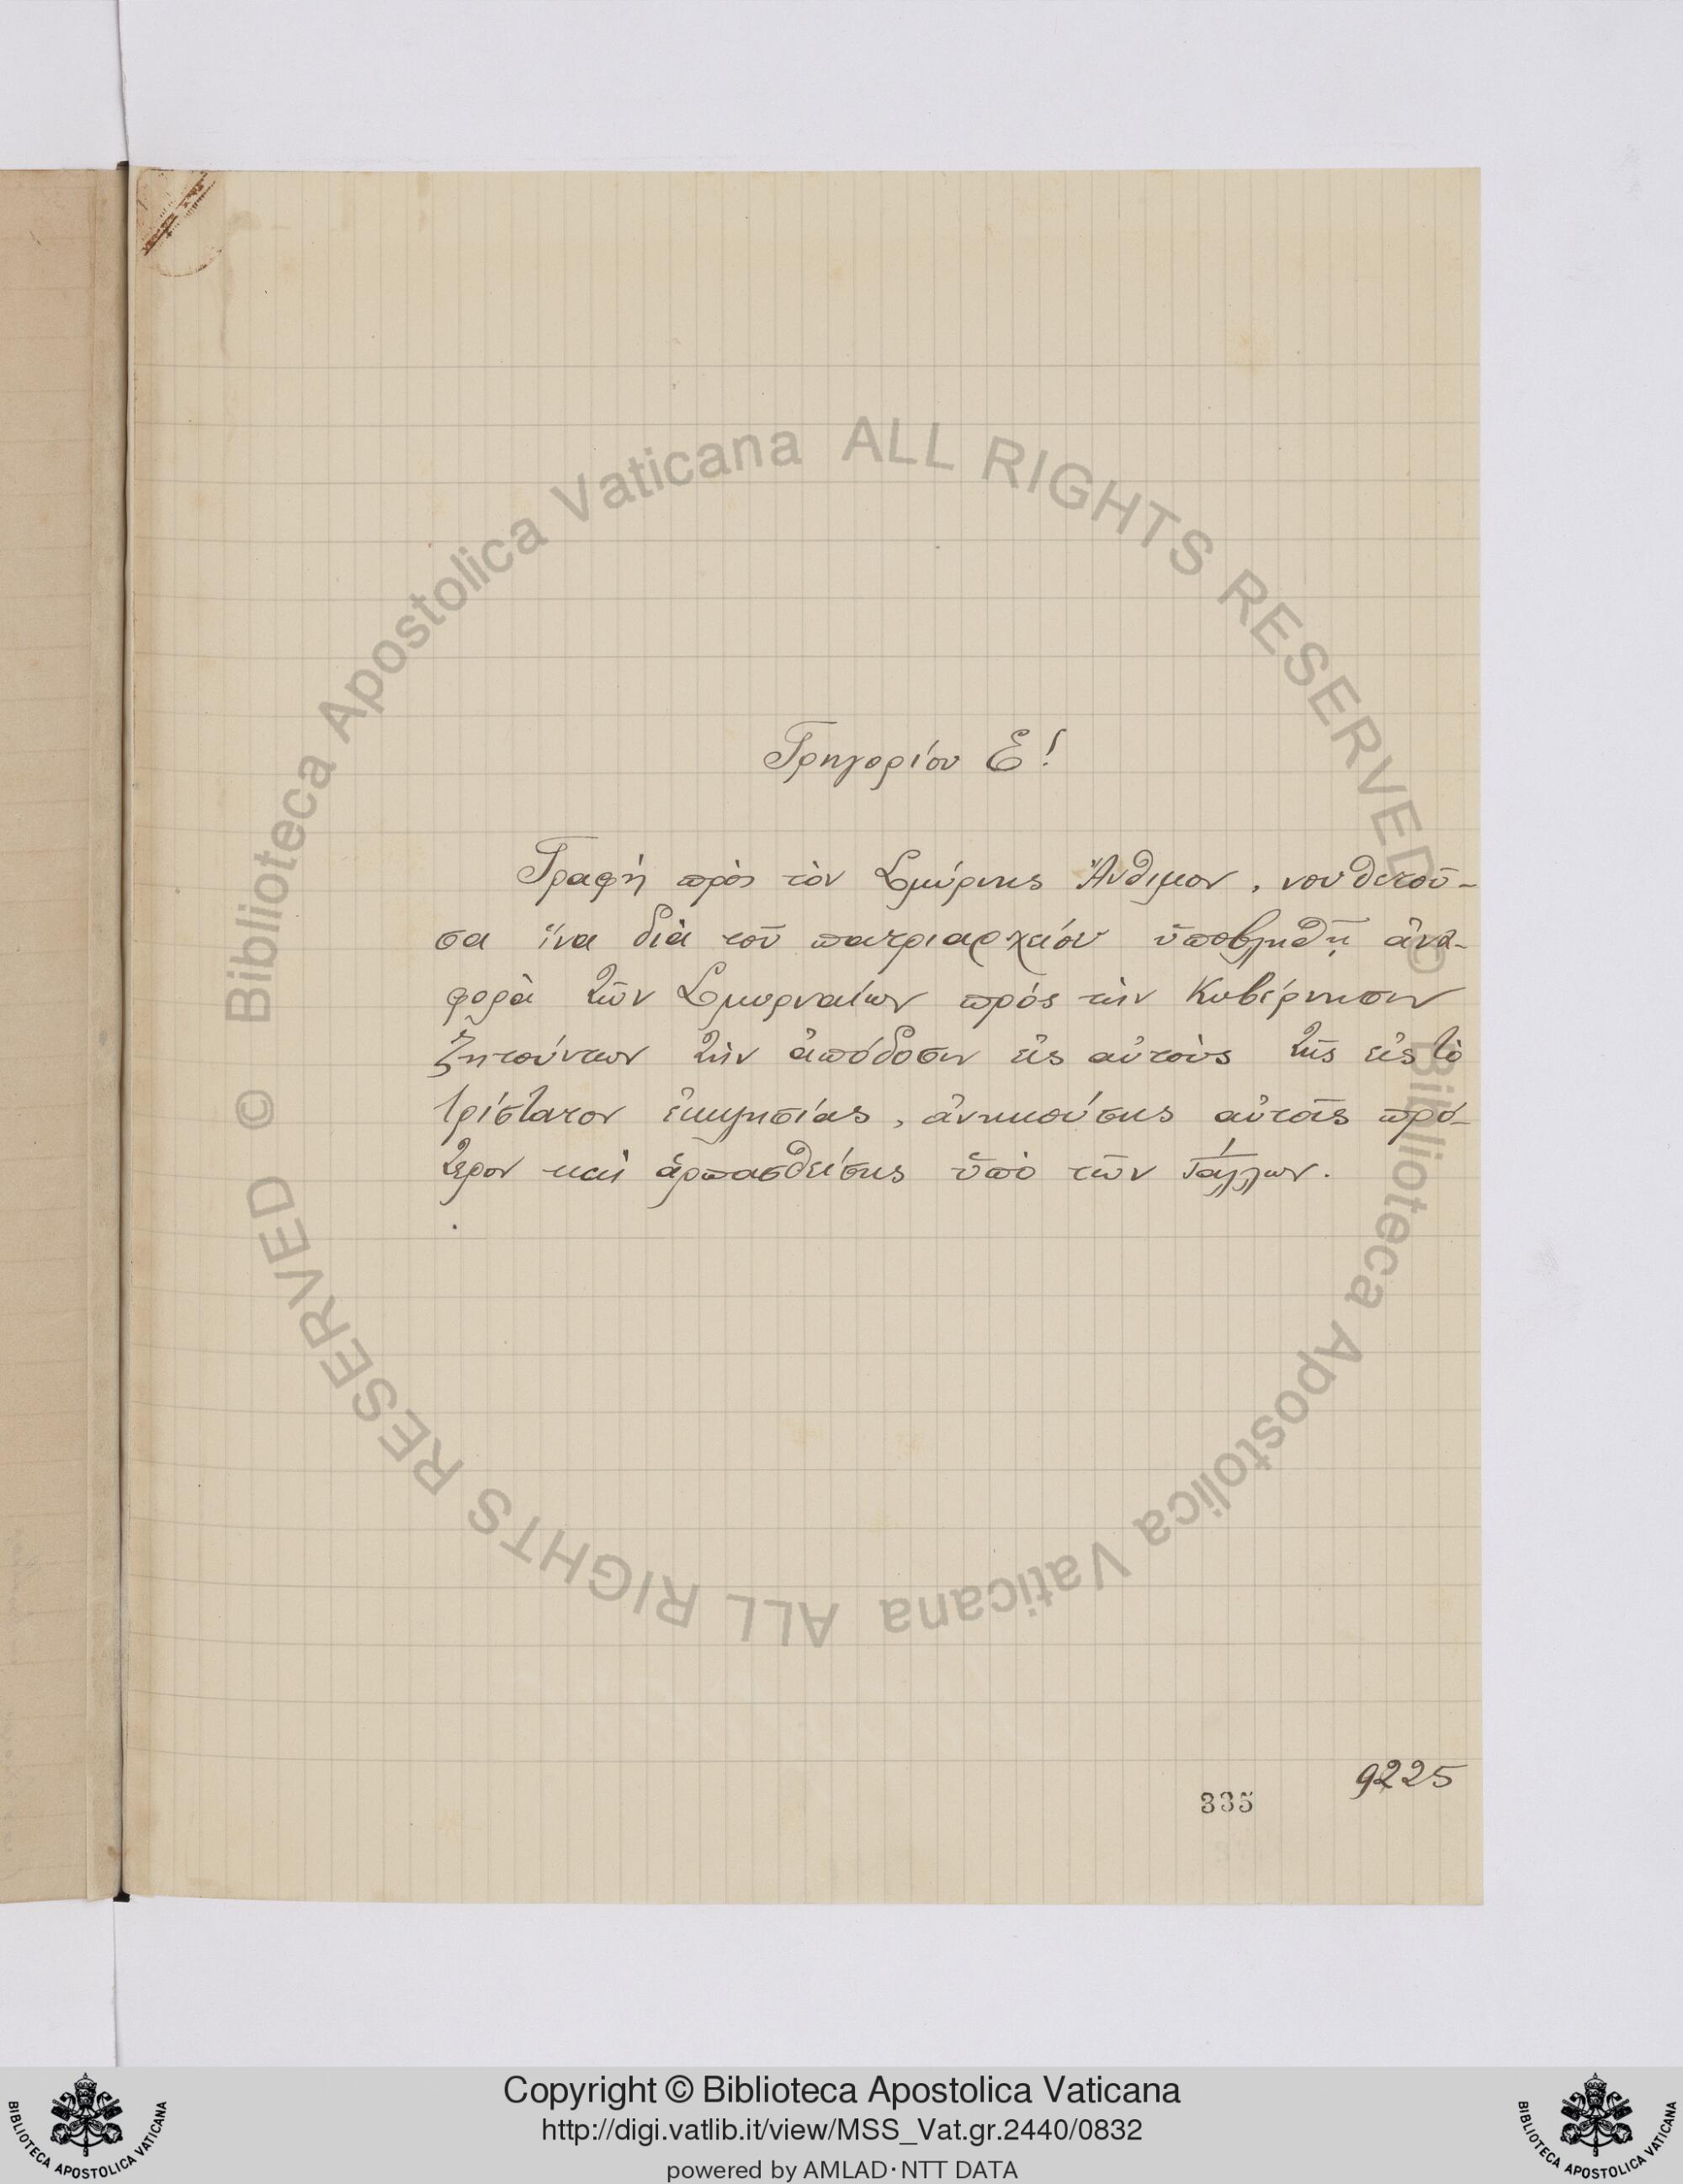 Γρηγορίου Ε!
Γραφὴ πρὸς τὸν Σμύρνης Ἄνθιμον, νουθετοῦ-
σα ἵνα διὰ τοῦ πατριαρχείου ὑποβληθῇ ἀνα-
φορὰ τῶν Σμυρναίων πρὸς τὴν Κυβέρνησιν
ζητούντων τὴν ἀπόδοσιν εἰς αὐτοὺς τῆς εἰς τὸ
τρίστατον ἐκκλησίας, ἀνηκούσης αὐτοῖς πρό-
τερον καὶ ἁρπασθείσης ὑπὸ τῶν Γάλλων.
9225
335
© Biblioteca Apostolica Vaticana ALL RIGHTS RESERVED
© Biblioteca Apostolica Vaticana ALL RIGHTS RESERVED
Copyright © Biblioteca Apostolica Vaticana
http://digi.vatlib.it/view/MSS_Vat.gr.2440/0832
powered by AMLAD·NTT DATA
BIBLIOTECA APOSTOLICA VATICANA
BIBLIOTECA APOSTOLICA VATICANA